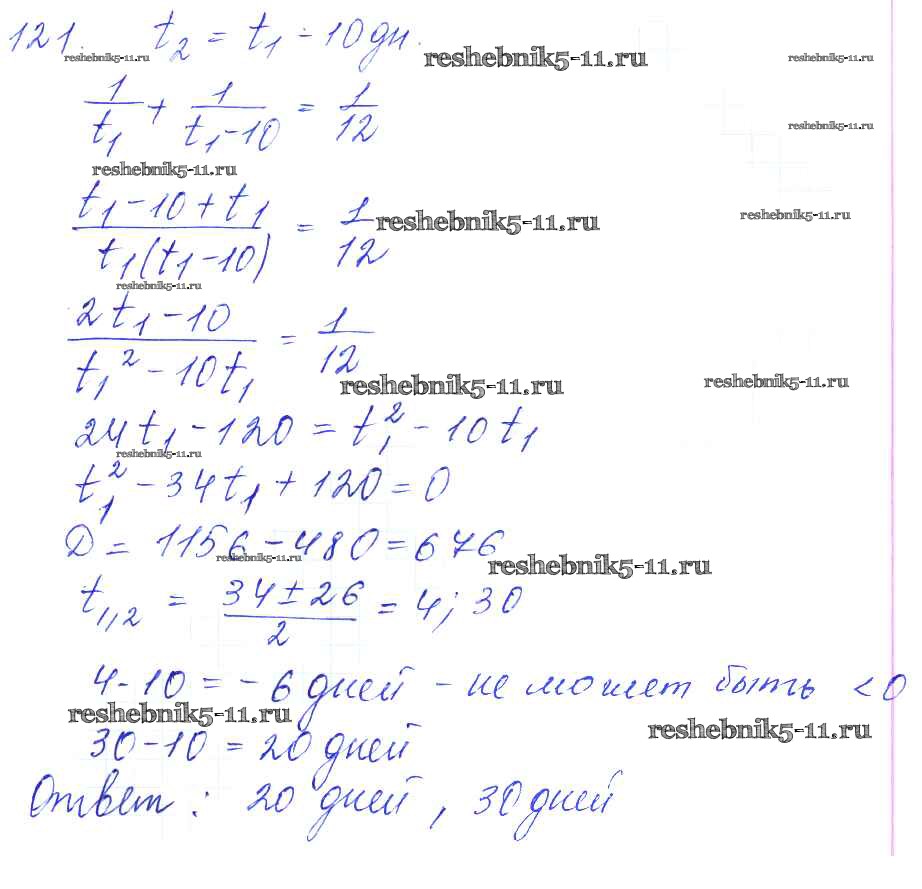 121. t₂ = t₁ - 10 дн.
reshebnik5-11.ru reshebnik5-11.ru reshebnik5-11.ru
1/t₁ + 1/(t₁-10) = 1/12
reshebnik5-11.ru
reshebnik5-11.ru
(t₁-10+t₁)/(t₁(t₁-10)) = 1/12
reshebnik5-11.ru reshebnik5-11.ru
reshebnik5-11.ru
(2t₁-10)/(t₁²-10t₁) = 1/12
reshebnik5-11.ru reshebnik5-11.ru
24t₁-120 = t₁²-10t₁
reshebnik5-11.ru
t₁²-34t₁+120=0
D = 1156-480=676
reshebnik5-11.ru reshebnik5-11.ru
t₁,₂ = (34±26)/2 = 4; 30
4-10 = -6 дней - не может быть <0
reshebnik5-11.ru reshebnik5-11.ru
30-10 = 20 дней
Ответ: 20 дней, 30 дней